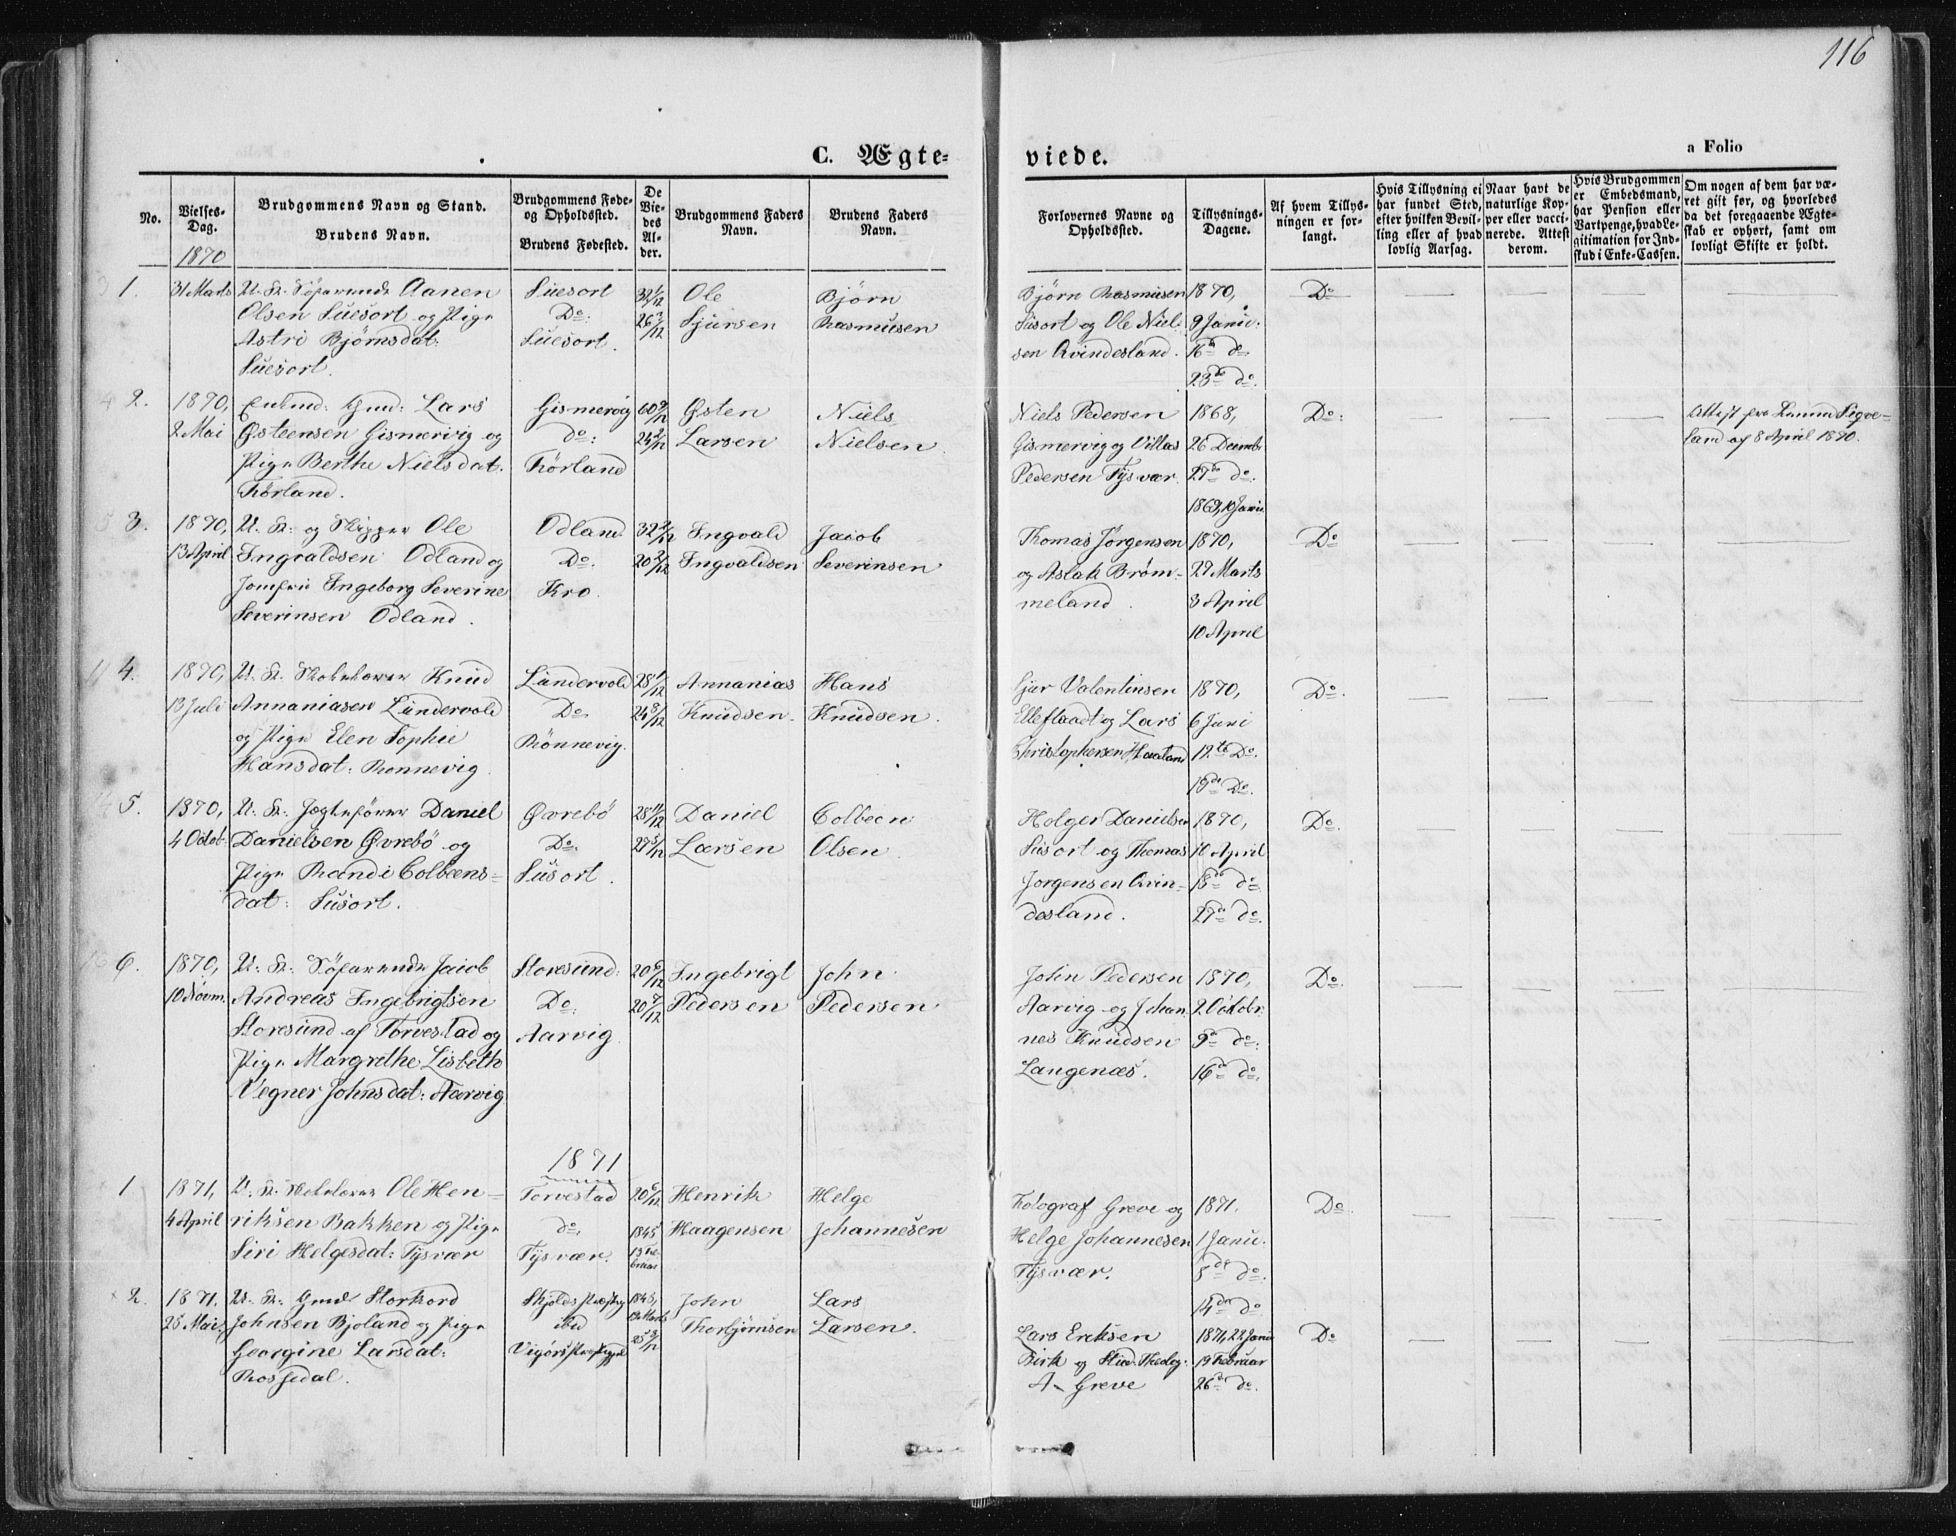 116
C. Ægte-
viede.
a Folio
No.
Vielses-
Dag.
1870
Brudgommens Navn og Stand.
Brudens Navn.
Brudgommens Føde-
og Opholdssted.
Brudens Fødested.
De
Vie-
des
Al-
der.
Brudgommens Faders
Navn.
Brudens Faders
Navn.
Forlovernes Navne og
Opholdssted.
Tillysnings-
Dagene.
Af hvem Tillys-
ningen er for-
langt.
Hvis Tillysning ei
har fundet Sted,
efter hvilken Bevil-
ling eller af hvad
lovlig Aarsag.
Naar havt de
naturlige Kop-
per eller vacci-
nerede. Attest
derom.
Hvis Brudgommen
er Embedsmand,
har Pension eller
Vartpenge, hvad Le-
gitimation for Ind-
skud i Enke-Cassen.
Om nogen af dem har væ-
ret gift før, og hvorledes
da det foregaaende Ægte-
skab er ophørt, samt om
lovligt Skifte er holdt.
1.
31 Marts
U. K. Söfarende Aanen
Olsen Suesort og Pige
Astri Bjørnsdat:
Suesort.
Suesort
Do:
Suesort.
32 1/12
26 3/12
Ole
Sjursen
Bjørn
Rasmusen
Bjørn Rasmusen
Susort og Ole Niel-
sen Qvindesland.
1870,
9 Janu:
16de do
23de do.
Do
2.
1870,
2 Mai
Enkmd. Gmd: Lars
Østeensen Gismervig og
Pige Berthe Nielsdat.
Førland.
Gismervig
do:
Førland
Østen
Larsen
Niels
Nielsen
Niels Pedersen
Gismervig og Villas
Pedersen Tysvær
1868,
26 Decembr
27de do.
1869, 10 Janu
Do:
Attest fra Lensmd Sigve-
land af 8 April 1870.
3.
1870,
13 April
U. K. og Skipper Ole
Ingvaldsen Odland og
Jomfru Ingeborg Severine
Severinsen Odland.
Odland
Do:
Kro.
32 2/12
20 2/12
Ingvald
Ingvaldsen
Jacob
Severinsen
Thomas Jørgensen
og Aslak Brøm-
meland.
1870,
27 Marts
3 April
10 April
Do
4.
1870,
13 Juli
U. K. Knud
Annaniasen Lündervold
og Pige Elen Sophie
Hansdat: Rønnevig
Lündervold
Do
Rönnevig.
Annanias
Knudsen.
Hans
Knudsen.
Sjur Valentinsen
Elleflaadt og Lars
Christophersen Haaland
1870,
6 Juni
12te Do.
19de Do.
Do.
5.
1870,
4 Octob:
U. K. Jægtefører Daniel
Danielsen Øvrebö og
Pige Randi Colbeens-
dat: Susort.
Øvrebö
Do.
Susort.
28 11/12
27 5/12
Daniel
Larsen
Colbeen
Olsen.
Holger Danielsen
Susort og Thomas
Jorgensen Qvin-
desland.
1870,
10 April
18de do.
27de do.
Do.
6.
1870,
10 Novm.
U. K. Söfarende Jacob
Andreas Ingebrigtsen
Storesund af Torvestad og
Pige Margrethe Lisbeth
Vegner Johnsdat: Aarvig
Storesund:
Do:
Aarvig
20 6/12
20 7/12
Ingebrigt
Pedersen
John
Pedersen
John Pedersen
Aarvig og Johan-
nes Knudsen
Langenæs.
1870,
2 Octobr.
9de do:
16de do.
Do.
1871
1
1871,
4 April
U. K. Ole Hen-
riksen Bakken og Pige
Siri Helgesdat: Tysvær
Torvestad
do.
Tysvær.
20 6/12
1845
13 Fe-
bruar
Henrik
Haagensen
Helge
Johannesen
Fotograf Greve og
Helge Johannesen
Tysvær.
1871.
1 Janu.
8de do.
14de do.
Do.
2.
1871.
25 Mai
U. K. Gmd Storkord
Johnsen Bjoland og Pige
Georgine Larsdat:
Rossedal.
Skjolds Præstegj
ibid
Vigörs Præstegjæl
1845,
13 Marts
25 3/12
John
Thorbjørnsen
Lars
Larsen.
Lars Ericksen
Birk og Stud. Theolg.
A. Greve
1871, 22 Janu
19 Februar
26de do.
Do